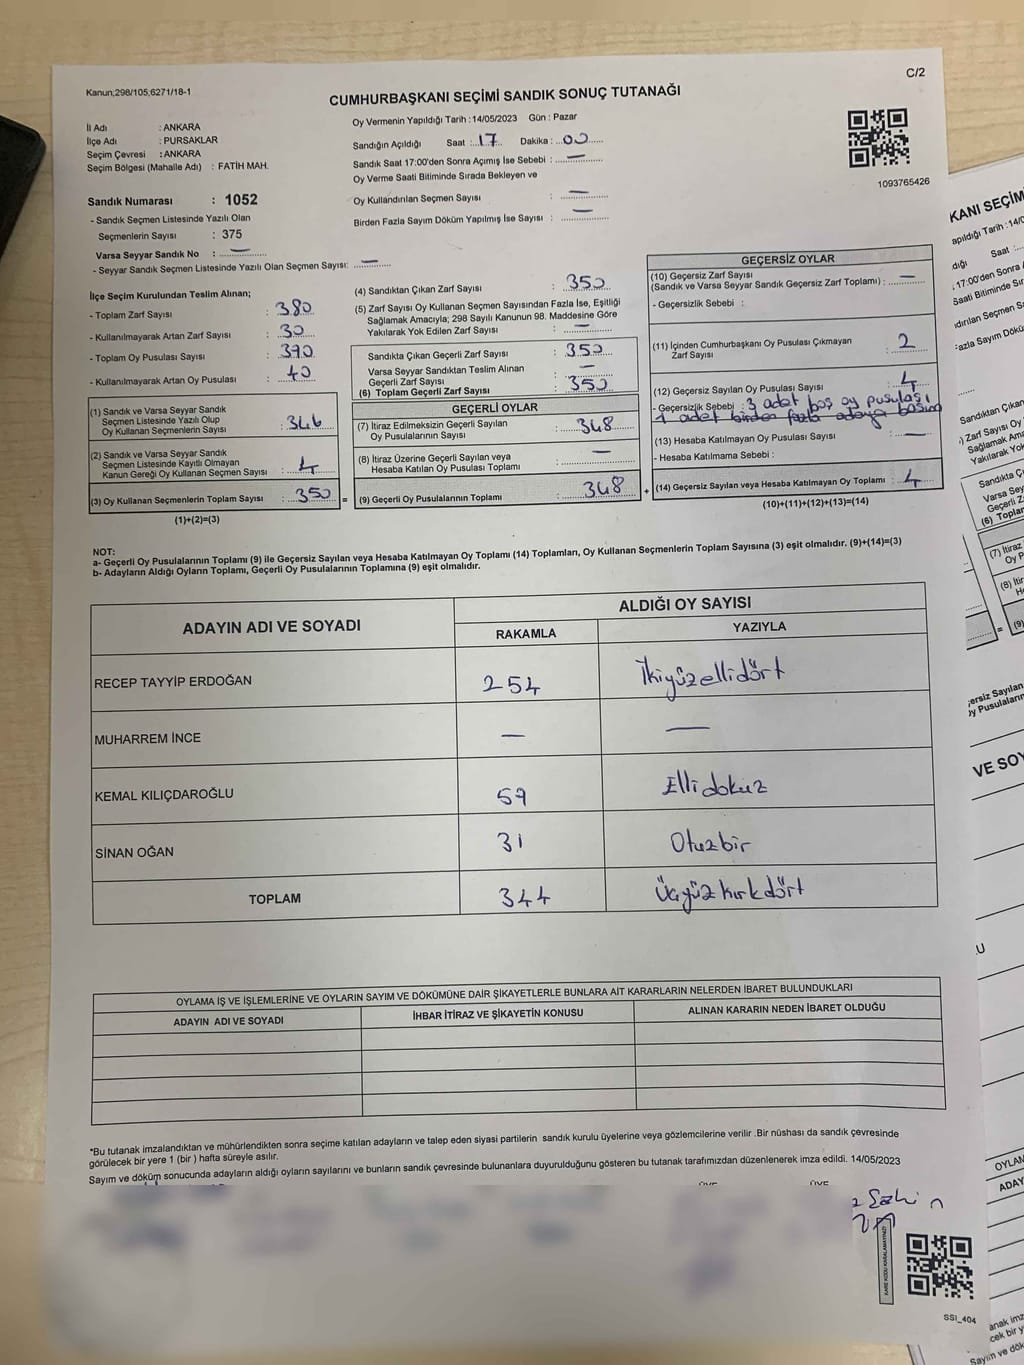 C/2
Kanun;298/105,6271/18-1
CUMHURBAŞKANI SEÇİMİ SANDIK SONUÇ TUTANAĞI
İl Adı : ANKARA
İlçe Adı : PURSAKLAR
Seçim Çevresi : ANKARA
Seçim Bölgesi (Mahalle Adı) : FATİH MAH.
Sandık Numarası : 1052
- Sandık Seçmen Listesinde Yazılı Olan
Seçmenlerin Sayısı : 375
Varsa Seyyar Sandık No : —
- Seyyar Sandık Seçmen Listesinde Yazılı Olan Seçmen Sayısı: —
Oy Vermenin Yapıldığı Tarih :14/05/2023 Gün : Pazar
Sandığın Açıldığı Saat : 17 Dakika : 00
Sandık Saat 17:00'den Sonra Açımış İse Sebebi : —
Oy Verme Saati Bitiminde Sırada Bekleyen ve
Oy Kullandırılan Seçmen Sayısı : —
Birden Fazla Sayım Döküm Yapılmış İse Sayısı : —
1093765426
İlçe Seçim Kurulundan Teslim Alınan;
- Toplam Zarf Sayısı : 380
- Kullanılmayarak Artan Zarf Sayısı : 30
- Toplam Oy Pusulası Sayısı : 390
- Kullanılmayarak Artan Oy Pusulası : 40
(1) Sandık ve Varsa Seyyar Sandık
Seçmen Listesinde Yazılı Olup
Oy Kullanan Seçmenlerin Sayısı : 346
(2) Sandık ve Varsa Seyyar Sandık
Seçmen Listesinde Kayıtlı Olmayan
Kanun Gereği Oy Kullanan Seçmen Sayısı : 4
(3) Oy Kullanan Seçmenlerin Toplam Sayısı : 350 =
(1)+(2)=(3)
(4) Sandıktan Çıkan Zarf Sayısı : 350
(5) Zarf Sayısı Oy Kullanan Seçmen Sayısından Fazla İse, Eşitliği
Sağlamak Amacıyla; 298 Sayılı Kanunun 98. Maddesine Göre
Yakılarak Yok Edilen Zarf Sayısı : —
Sandıkta Çıkan Geçerli Zarf Sayısı : 350
Varsa Seyyar Sandıktan Teslim Alınan
Geçerli Zarf Sayısı : —
(6) Toplam Geçerli Zarf Sayısı : 350
GEÇERLİ OYLAR
(7) İtiraz Edilmeksizin Geçerli Sayılan
Oy Pusulalarının Sayısı : 348
(8) İtiraz Üzerine Geçerli Sayılan veya
Hesaba Katılan Oy Pusulası Toplamı : —
(9) Geçerli Oy Pusulalarının Toplamı : 348 +
GEÇERSİZ OYLAR
(10) Geçersiz Zarf Sayısı
(Sandık ve Varsa Seyyar Sandık Geçersiz Zarf Toplamı) : —
- Geçersizlik Sebebi :
(11) İçinden Cumhurbaşkanı Oy Pusulası Çıkmayan
Zarf Sayısı : 2
(12) Geçersiz Sayılan Oy Pusulası Sayısı : 4
- Geçersizlik Sebebi : 3 adet boş oy pusulası
1 adet birden fazla adaya basım
(13) Hesaba Katılmayan Oy Pusulası Sayısı : —
- Hesaba Katılmama Sebebi :
(14) Geçersiz Sayılan veya Hesaba Katılmayan Oy Toplamı : 4
(10)+(11)+(12)+(13)=(14)
NOT:
a- Geçerli Oy Pusulalarının Toplamı (9) ile Geçersiz Sayılan veya Hesaba Katılmayan Oy Toplamı (14) Toplamları, Oy Kullanan Seçmenlerin Toplam Sayısına (3) eşit olmalıdır. (9)+(14)=(3)
b- Adayların Aldığı Oyların Toplamı, Geçerli Oy Pusulalarının Toplamına (9) eşit olmalıdır.
ADAYIN ADI VE SOYADI
ALDIĞI OY SAYISI
RAKAMLA YAZIYLA
RECEP TAYYİP ERDOĞAN 254 İkiyüzellidört
MUHARREM İNCE — —
KEMAL KILIÇDAROĞLU 59 Ellidokuz
SİNAN OĞAN 31 Otuzbir
TOPLAM 344 Üçyüzkırkdört
OYLAMA İŞ VE İŞLEMLERİNE VE OYLARIN SAYIM VE DÖKÜMÜNE DAİR ŞİKAYETLERLE BUNLARA AİT KARARLARIN NELERDEN İBARET BULUNDUKLARI
ADAYIN ADI VE SOYADI İHBAR İTİRAZ VE ŞİKAYETİN KONUSU ALINAN KARARIN NEDEN İBARET OLDUĞU
*Bu tutanak imzalandıktan ve mühürlendikten sonra seçime katılan adayların ve talep eden siyasi partilerin sandık kurulu üyelerine veya gözlemcilerine verilir .Bir nüshası da sandık çevresinde
görülecek bir yere 1 (bir ) hafta süreyle asılır.
Sayım ve döküm sonucunda adayların aldığı oyların sayılarını ve bunların sandık çevresinde bulunanlara duyurulduğunu gösteren bu tutanak tarafımızdan düzenlenerek imza edildi. 14/05/2023
KARE KODU KARALAMAYINIZ!
SSI_404